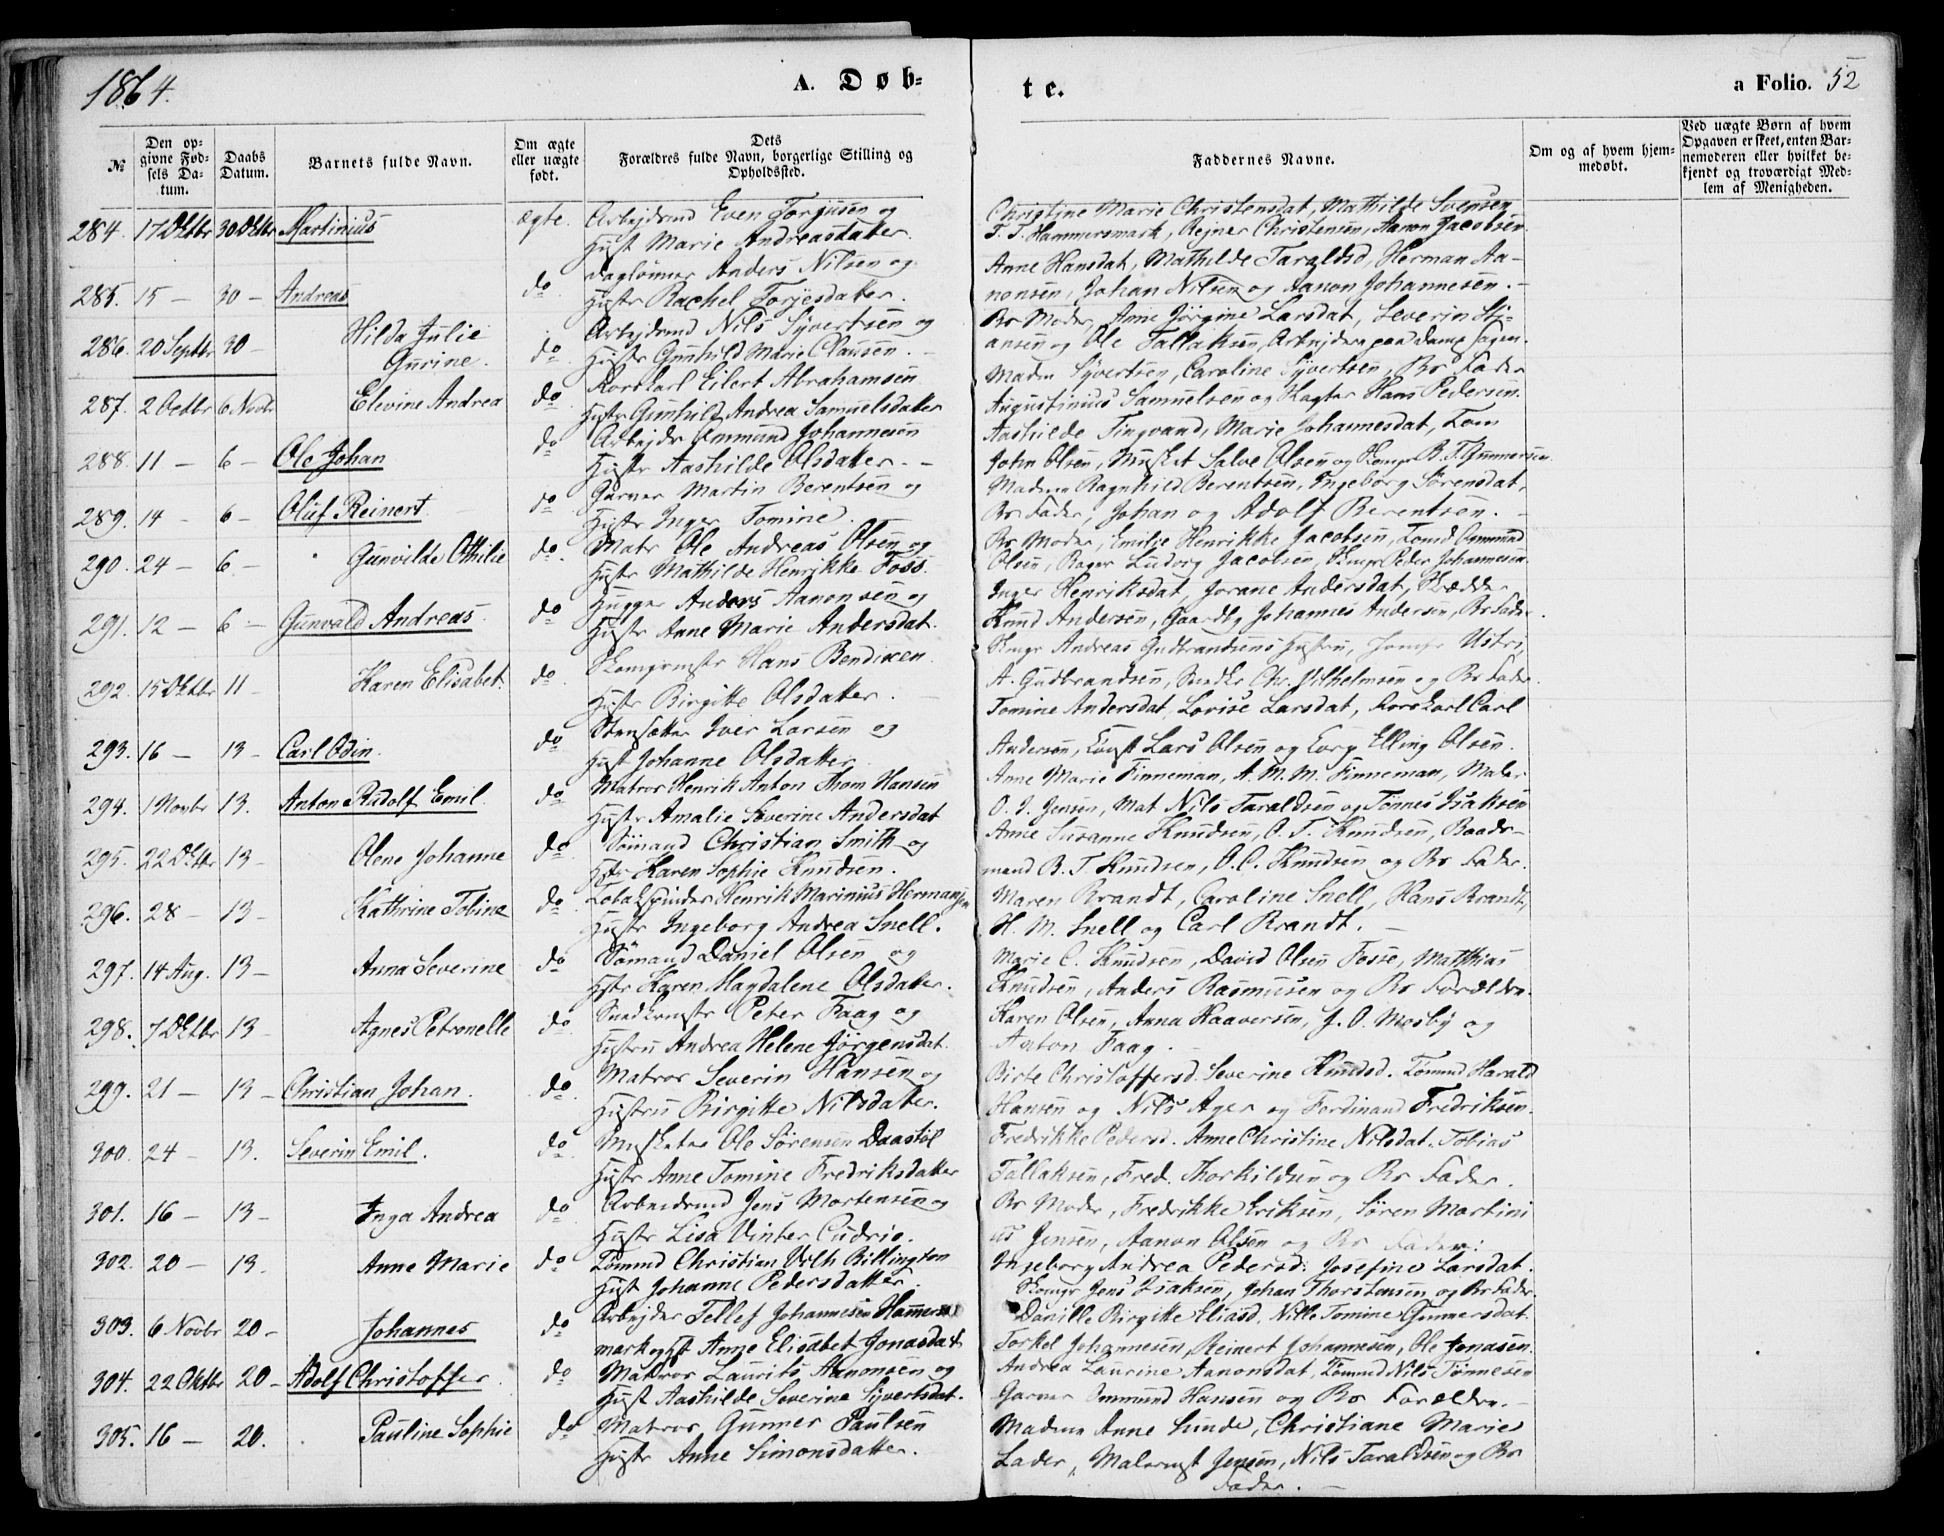 1864.
A. Døb-
te.
a Folio. 52
№
Den op-
givne Fød-
sels Da-
tum.
Daabs
Datum.
Barnets fulde Navn.
Om ægte
eller uægte
født.
Dets
Forældres fulde Navn, borgerlige Stilling og
Opholdssted.
Faddernes Navne.
Om og af hvem hjem-
medøbt.
Ved uægte Børn af hvem
Opgaven er skeet, enten Bar-
nemoderen eller hvilket be-
kjendt og troværdigt Med-
lem af Menigheden.
284. 17 Oktbr 30 Oktbr Martinius ægte. Arbejdsmd Even Torgusen og
Hust Marie Andreasdatter.
Christine Marie Christensdat, Mathilde Svensen
T. T. Hammersmark, Rejner Christensen, Aanon Jacobsen.
285. 15 – 30 – Andreas do Daglønner Anders Nilsen og
Hustr Rachel Torjesdatter.
Anne Hansdat, Mathilde Taraldsd, Herman Aa-
nonsen, Johan Nilsen og Aanon Johannesen.
286. 20 Septbr 30 – Hilda Julie
Gurine. do Arbejdsmd Nils Syvertsen og
Hustr Gunhild Marie Clausen.
Br Moder, Anne Jørgine Larsdat, Severin
ansen og Ole Tallaksen, Arbejdere paa Damp Sagen.
287. 2 Octbr 6 Novbr Elevine Andrea do Rorskarl Eilert Abrahamsen
Hustr Gunhild Andrea Samuelsdatter
Madm Syvertsen, Caroline Syvertsen, Br Fader
Augustinius Samuelsen og Hans Pedersen.
288. 11 – 6 – Ole Johan do Arbejdr Ommund Johannesen
Hustr Aashilde Olsdatter. –
Aashilde Tingvand, Marie Johannesdat, Tom
John Olsen, Musket Salve Olsen og B. T. Gunnersen
289. 14 – 6 – Oluf Reinert do Garver Martin Berentsen og
Hustr Inger Tomine.
Madm Ragnhild Berentsen, Ingeborg Sørensdat,
Br Fader, Johan og Adolf Berentsen. –
290. 24 – 6 – Gunvilde Othilie do Matr Ole Andreas Olsen og
Hustr Mathilde Henrikke Foss.
Br Moder, Emilie Henrikke Jacobsen, Tomd Ommund
Olsen, Bager Ludvig Jacobsen, Skomgr Peder Johannesen.
291. 12 – 6 – Gunvald Andreas. do Hugger Anders Aanonsen og
Hustr Anne Marie Andersdat.
Inger Henriksdat, Jorane Andersdat, Skrædder
Knud Andersen, Gaardbr Johannes Andersen, Br Fader.
292. 15 Oktbr 11 – Karen Elisabet. do Skomgrmstr Hans Bendixen
Hustr Birgitte Olsdatter. –
Skmgr Andreas Gudbrandsens Hustru, Jomfr Ustri,
A. Gudbrandsen, Chr. Vilhelmsen og Br Fader.
293. 16 – 13 – Carl Odin. do Stensætter Iver Larsen og
Hust Johanne Olsdatter
Tomine Andersdat, Lovise Larsdat, Rorskarl Carl
Andersen, Lars Olsen og Elling Olsen.
294. 1 Novbr 13. Anton Rudolf Emil. do Matros Henrik Anton Thom Hansen
Hustr Amalie Severine Andersdat
Anne Marie Finneman, A. M. M. Finneman, Maler
O. J. Jensen, Mat Nils Taraldsen og Tønnes Isaksen
295. 22 Oktbr 13 – Olene Johanne do Sömand Christian Smith og
Hstr Karen Sophie Knudsen.
Anne Susanne Knudsen, O. T. Knudsen, Baads-
mand B. T. Knudsen, O. C. Knudsen og Br Fader.
296. 28 – 13 – Kathrine Tobine do Tobakspinder Henrik Marinius Hermansen
Hustr Ingeborg Andrea Snell.
Maren Brandt, Caroline Snell, Hans Brandt,
H. M. Snell og Carl Brandt. –
297. 14 Aug. 13 – Anna Severine do Sömand Daniel Olsen og
Hstr Karen Magdalene Olsdatter.
Marie C. Knudsen, David Olsen Fosse, Matthias
Knudsen, Anders Rasmussen og Br Forældre.
298. 7 Oktbr 13 – Agnes Petronelle do Peter Faag og
Hustru Andrea Helene Jörgensdat.
Karen Olsen, Anna Haaversen, J. O. Mosby og
Anton Faag.
299. 21 – 13 – Christian Johan. do Matros Severin Hansen og
Hustru Birgitte Nilsdatter.
Birte Christoffersd. Severine Knudsd. Tömmd Harald
Hansen og Nils Ager og Ferdinand Fredriksen.
300. 24 – 13. Severin Emil. do Musketer Ole Sörensen Daastöl
Hustr Anne Tomine Fredriksdatter
Fredrikke Pedersd. Anne Christine Nilsdat. Tobias
Tallaksen, Fred. Thorkildsen og Br Fader.
301. 16 – 13 – Inga Andrea do Arbeidsmd Jens Mortensen og
Hustr Lisa Vinter Cudrio.
Br Moder, Fredrikke Eriksen, Sören Martini
us Jensen, Aanon Olsen og Br Fader.
302. 20 – 13. Anne Marie do Tömmd Christian Vilh Billington
Hust Johanne Pedersdatter.
Ingeborg Andrea Pedersd. Josefine Larsdat.
Skomgr Jens Isaksen, Johan Thorstensen og Br Fader.
303. 6 Novbr 20 – Johannes do Arbejder Tellef Johannesen Hammers
mark og Hst Anne Elisabet Jonasdat.
Danille Birgitte Eliasd. Nille Tomine Gunnersdat.
Torkel Johannesen, Reinert Johannesen, Ole Jonasen.
304. 22 Oktbr 20 – Adolf Christoffer. do Matros Laurits Aanonsen og
Hust Aashilde Severine Syvertsdat.
Andrea Laurine Aanonsdat, Tömmd Nils Tönnesen
Garver Ommund Hansen og Br Forældre. –
305. 16 – 20. Pauline Sophie do Matros Gunner Paulsen
Hustr Anne Simonsdatter.
Madam Anne Sunde, Christiane Marie
Lader, Malermst Jensen, Nils Taraldsen og Br
Fader. –